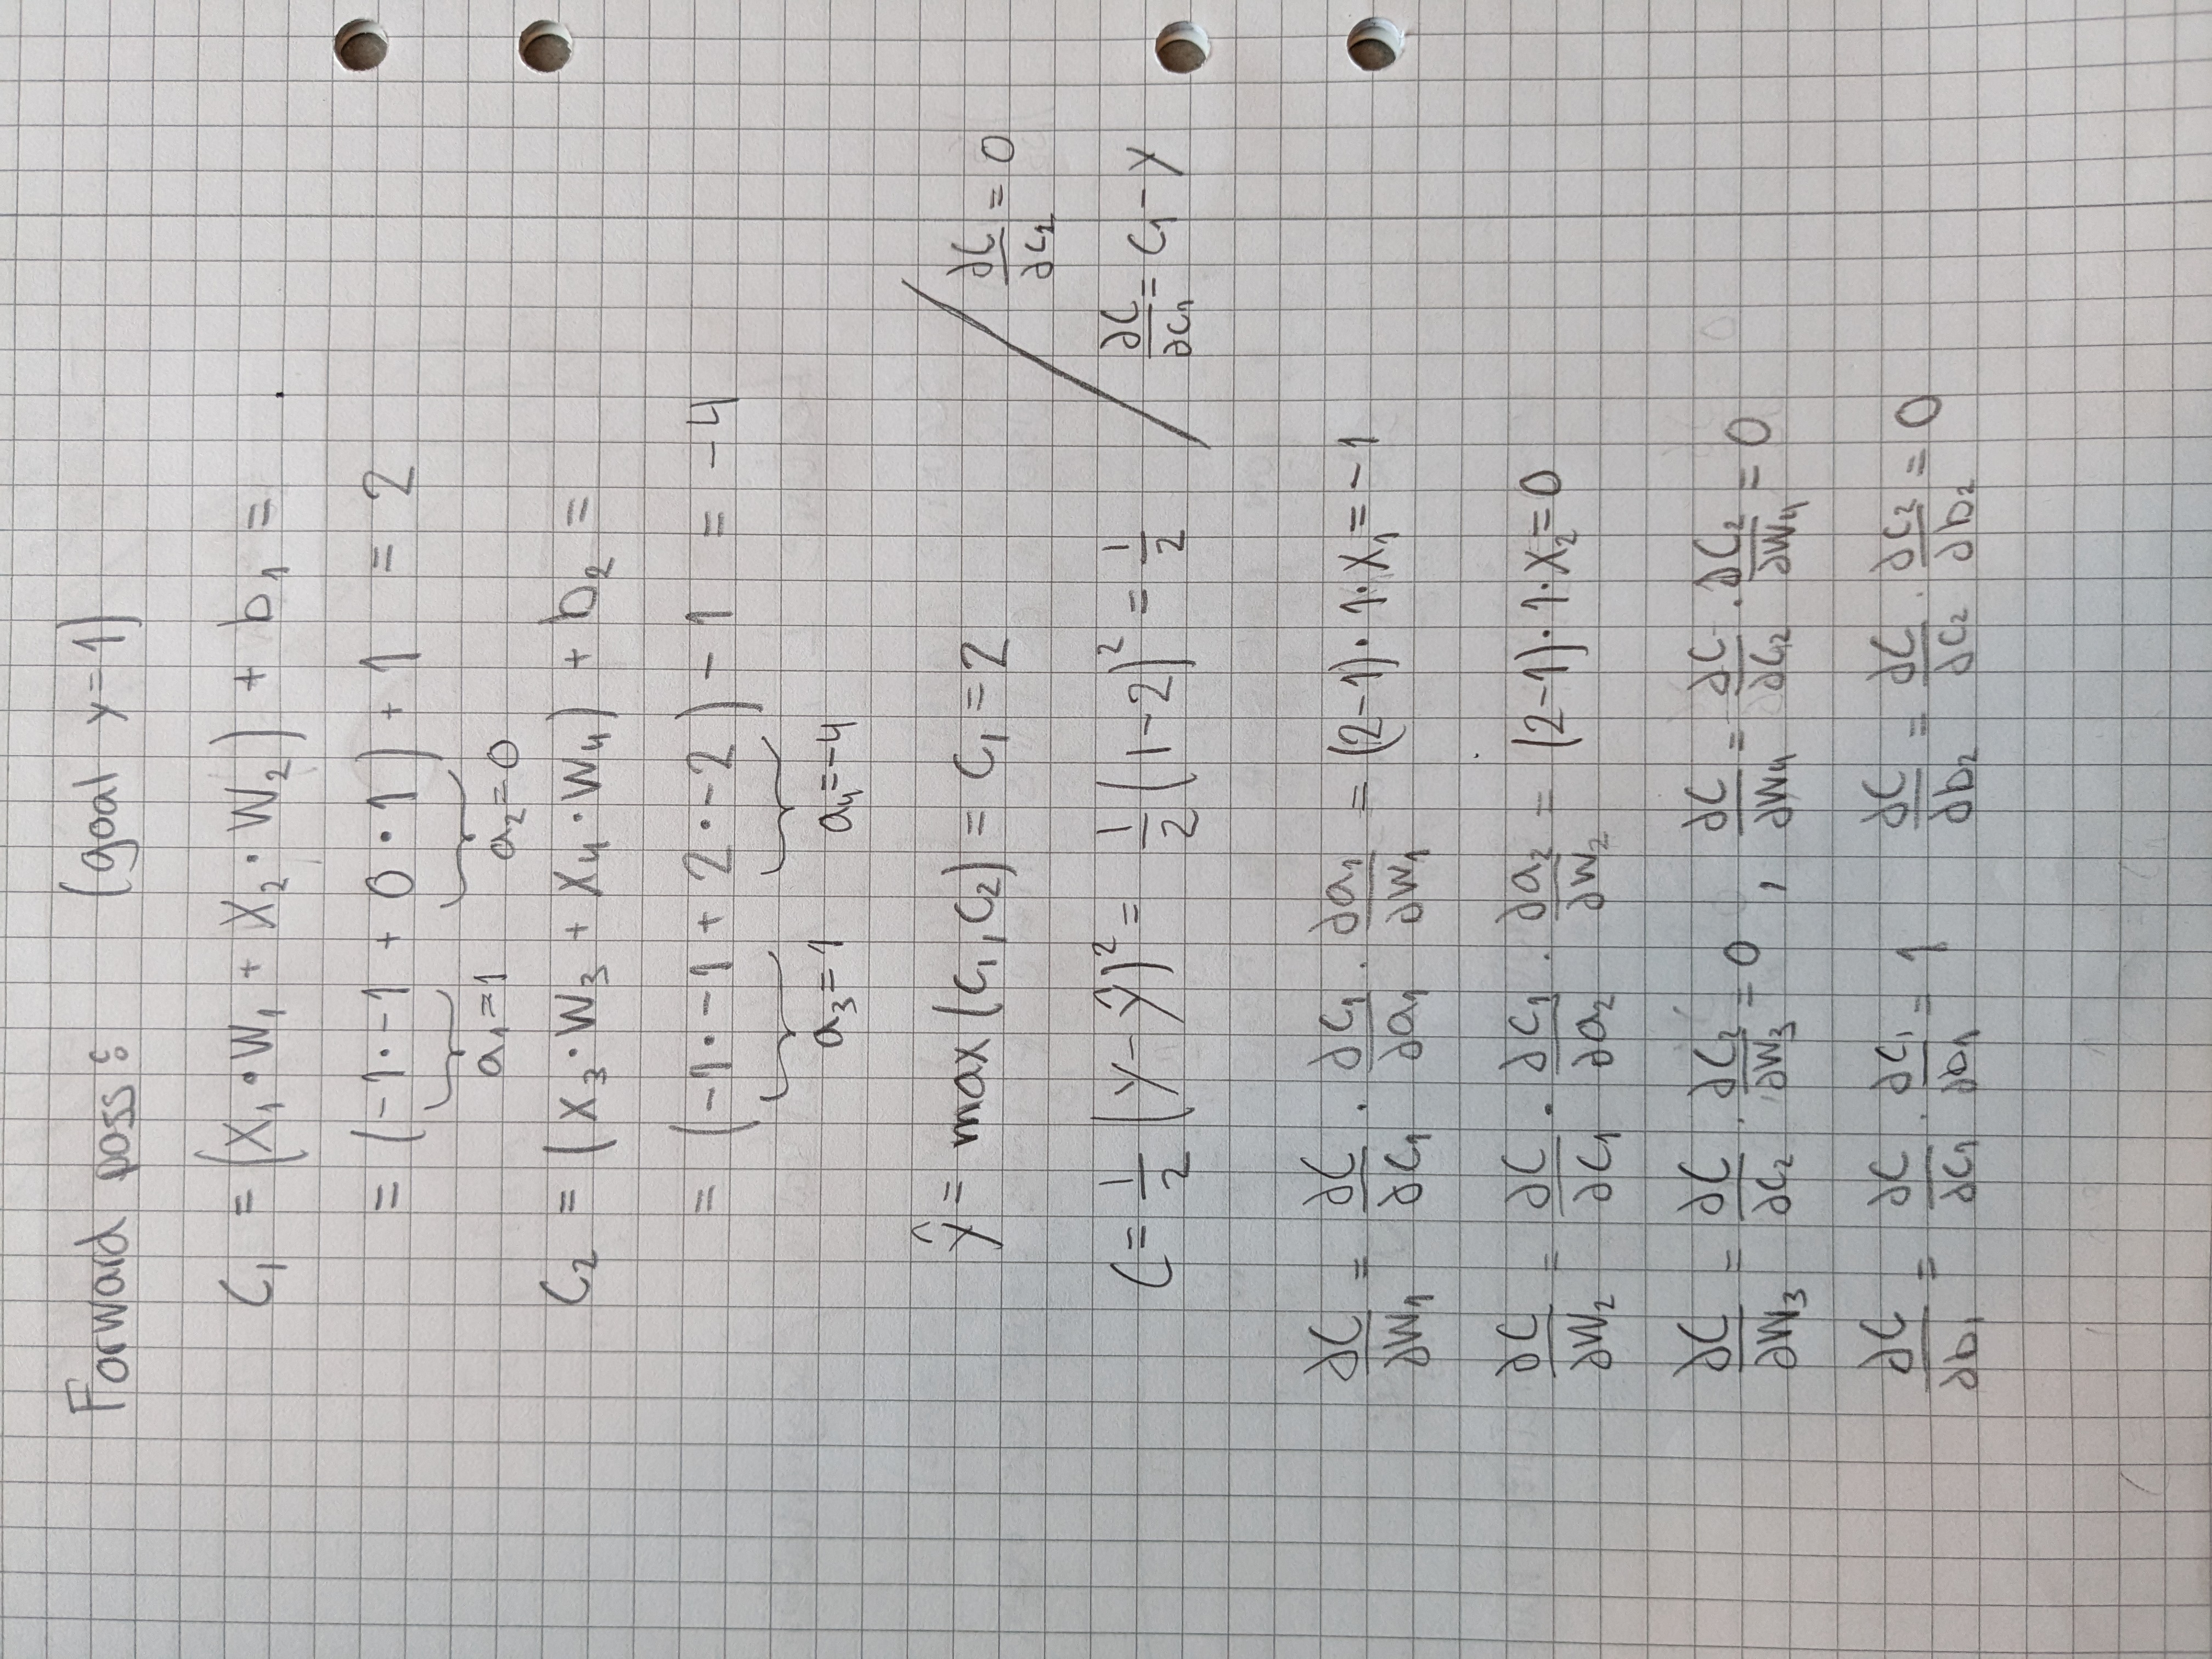 Forward pass: (goal y=1)
C₁ = (X₁·W₁ + X₂·W₂) + b₁ =
= (-1·-1 + 0·1) + 1 = 2
a₁=1 a₂=0
C₂ = (X₃·W₃ + X₄·W₄) + b₂ =
= (-1·-1 + 2·-2) - 1 = -4
a₃=1 a₄=-4
ŷ = max(c₁,c₂) = c₁ = 2
∂C/∂c₂ = 0
C = 1/2 (y-ŷ)² = 1/2 (1-2)² = 1/2
∂C/∂c₁ = c₁ - y
∂C/∂W₁ = ∂C/∂c₁ · ∂c₁/∂a₁ · ∂a₁/∂W₁ = (2-1)·1·X₁ = -1
∂C/∂W₂ = ∂C/∂c₁ · ∂c₁/∂a₂ · ∂a₂/∂W₂ = (2-1)·1·X₂ = 0
∂C/∂W₃ = ∂C/∂c₂ · ∂c₂/∂W₃ = 0 , ∂C/∂W₄ = ∂C/∂c₂ · ∂c₂/∂W₄ = 0
∂C/∂b₁ = ∂C/∂c₁ · ∂c₁/∂b₁ = 1 ∂C/∂b₂ = ∂C/∂c₂ · ∂c₂/∂b₂ = 0